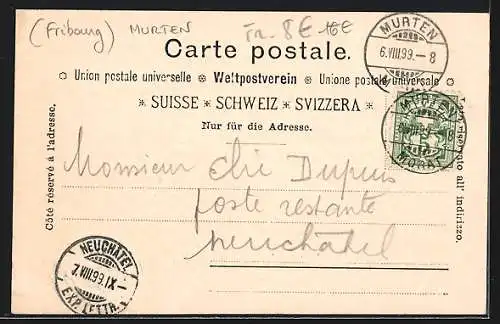 (Fribourg) MURTEN Tr. 8€ 16€
Carte postale.
MURTEN
6.VIII.99.–8
Union postale universelle ⊛ Weltpostverein ⊛ Unione postale universale
* SUISSE * SCHWEIZ * SVIZZERA *
Nur für die Adresse.
MURTEN
MORAT
Côté réservé à l'adresse.
all' indirizzo.
Monsieur Elie Dupuis
poste restante
Neuchâtel
NEUCHATEL
7.VIII.99.IX–
EXP. LETTR.